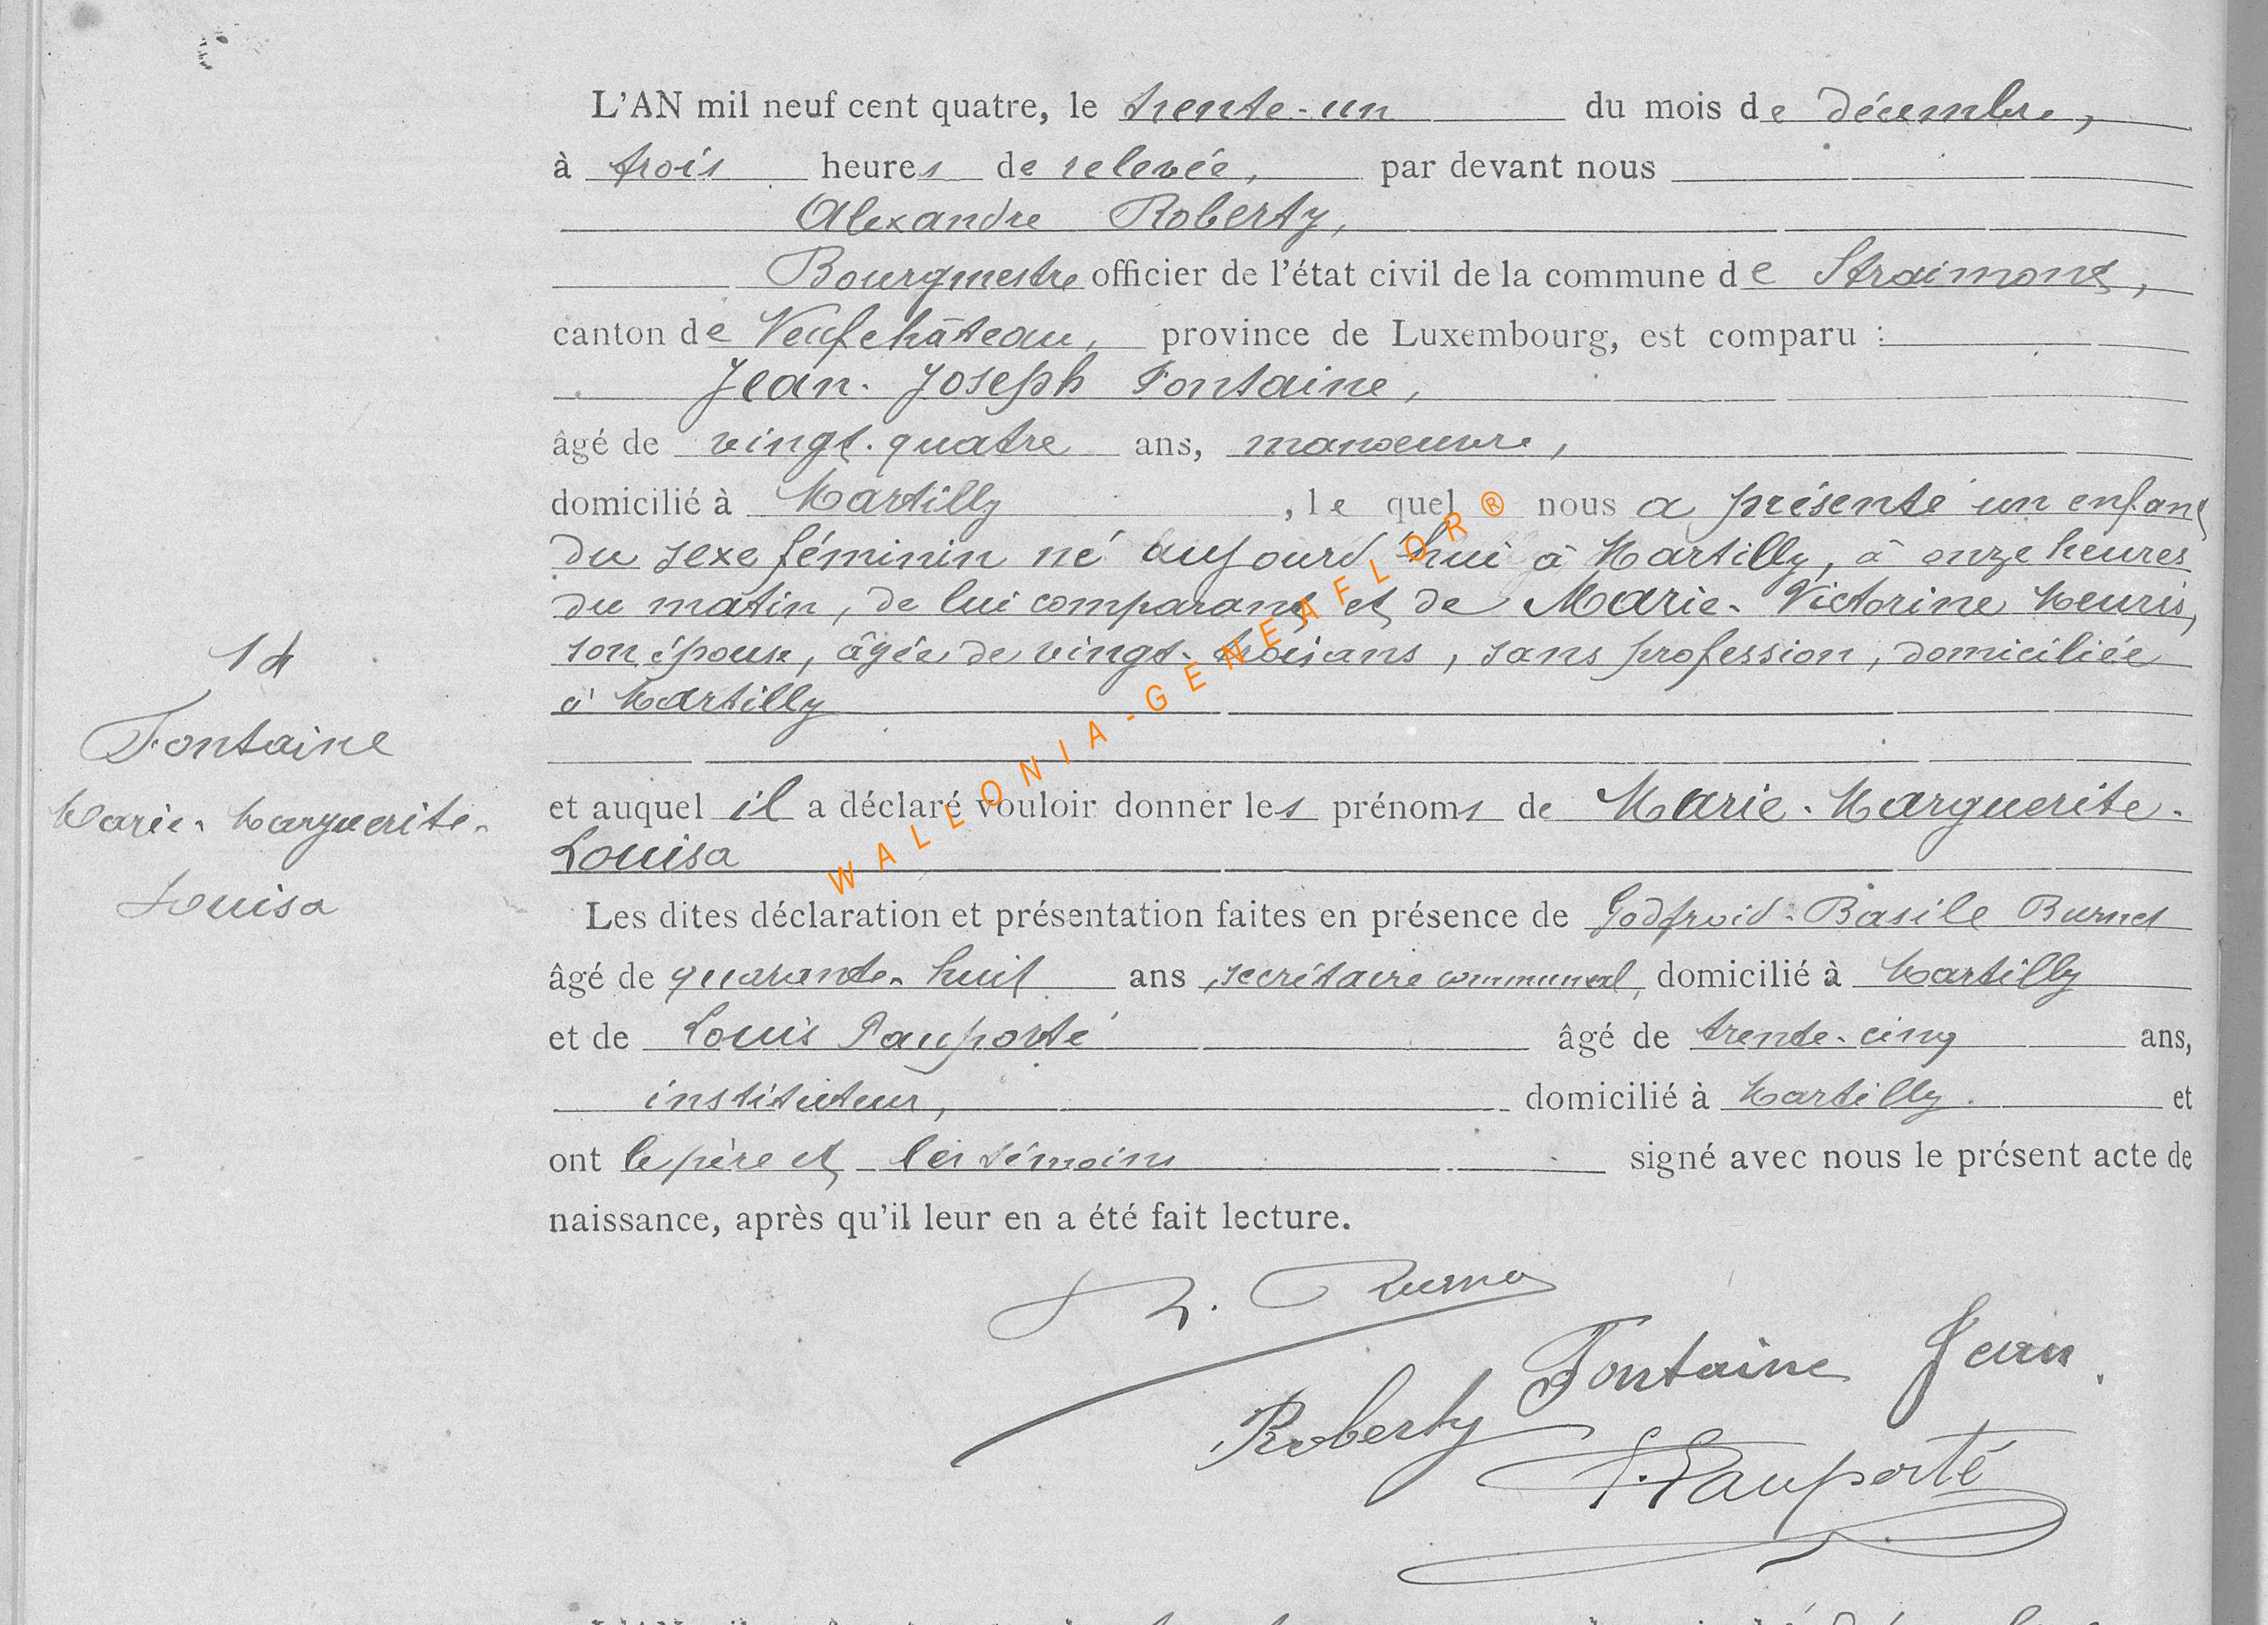 L'AN mil neuf cent quatre, le trente-un du mois de décembre,
à trois heures de relevée, par devant nous
Alexandre Roberty,
Bourgmestre officier de l'état civil de la commune de Straimont,
canton de Neufchâteau, province de Luxembourg, est comparu :
Jean-Joseph Fontaine,
âgé de vingt-quatre ans, manoeuvre,
domicilié à Martilly , le quel nous a présenté un enfant
du sexe féminin né aujourd'hui à Martilly, à onze heures
du matin, de lui comparant et de Marie-Victorine Meuris,
son épouse, âgée de vingt-trois ans, sans profession, domiciliée
à Martilly
14
Fontaine
Marie-Marguerite-
Louisa
et auquel il a déclaré vouloir donner les prénoms de Marie-Marguerite-
Louisa
Les dites déclaration et présentation faites en présence de Godfroid-Basile Burnet
âgé de quarante-huit ans, secrétaire communal, domicilié à Martilly
et de Louis Pauporté âgé de trente-cinq ans,
instituteur, domicilié à Martilly et
ont le père et les témoins signé avec nous le présent acte de
naissance, après qu'il leur en a été fait lecture.
Burnet
Fontaine Jean.
Roberty
L. Pauporté
WALLONIA-GENEAFLOR ®